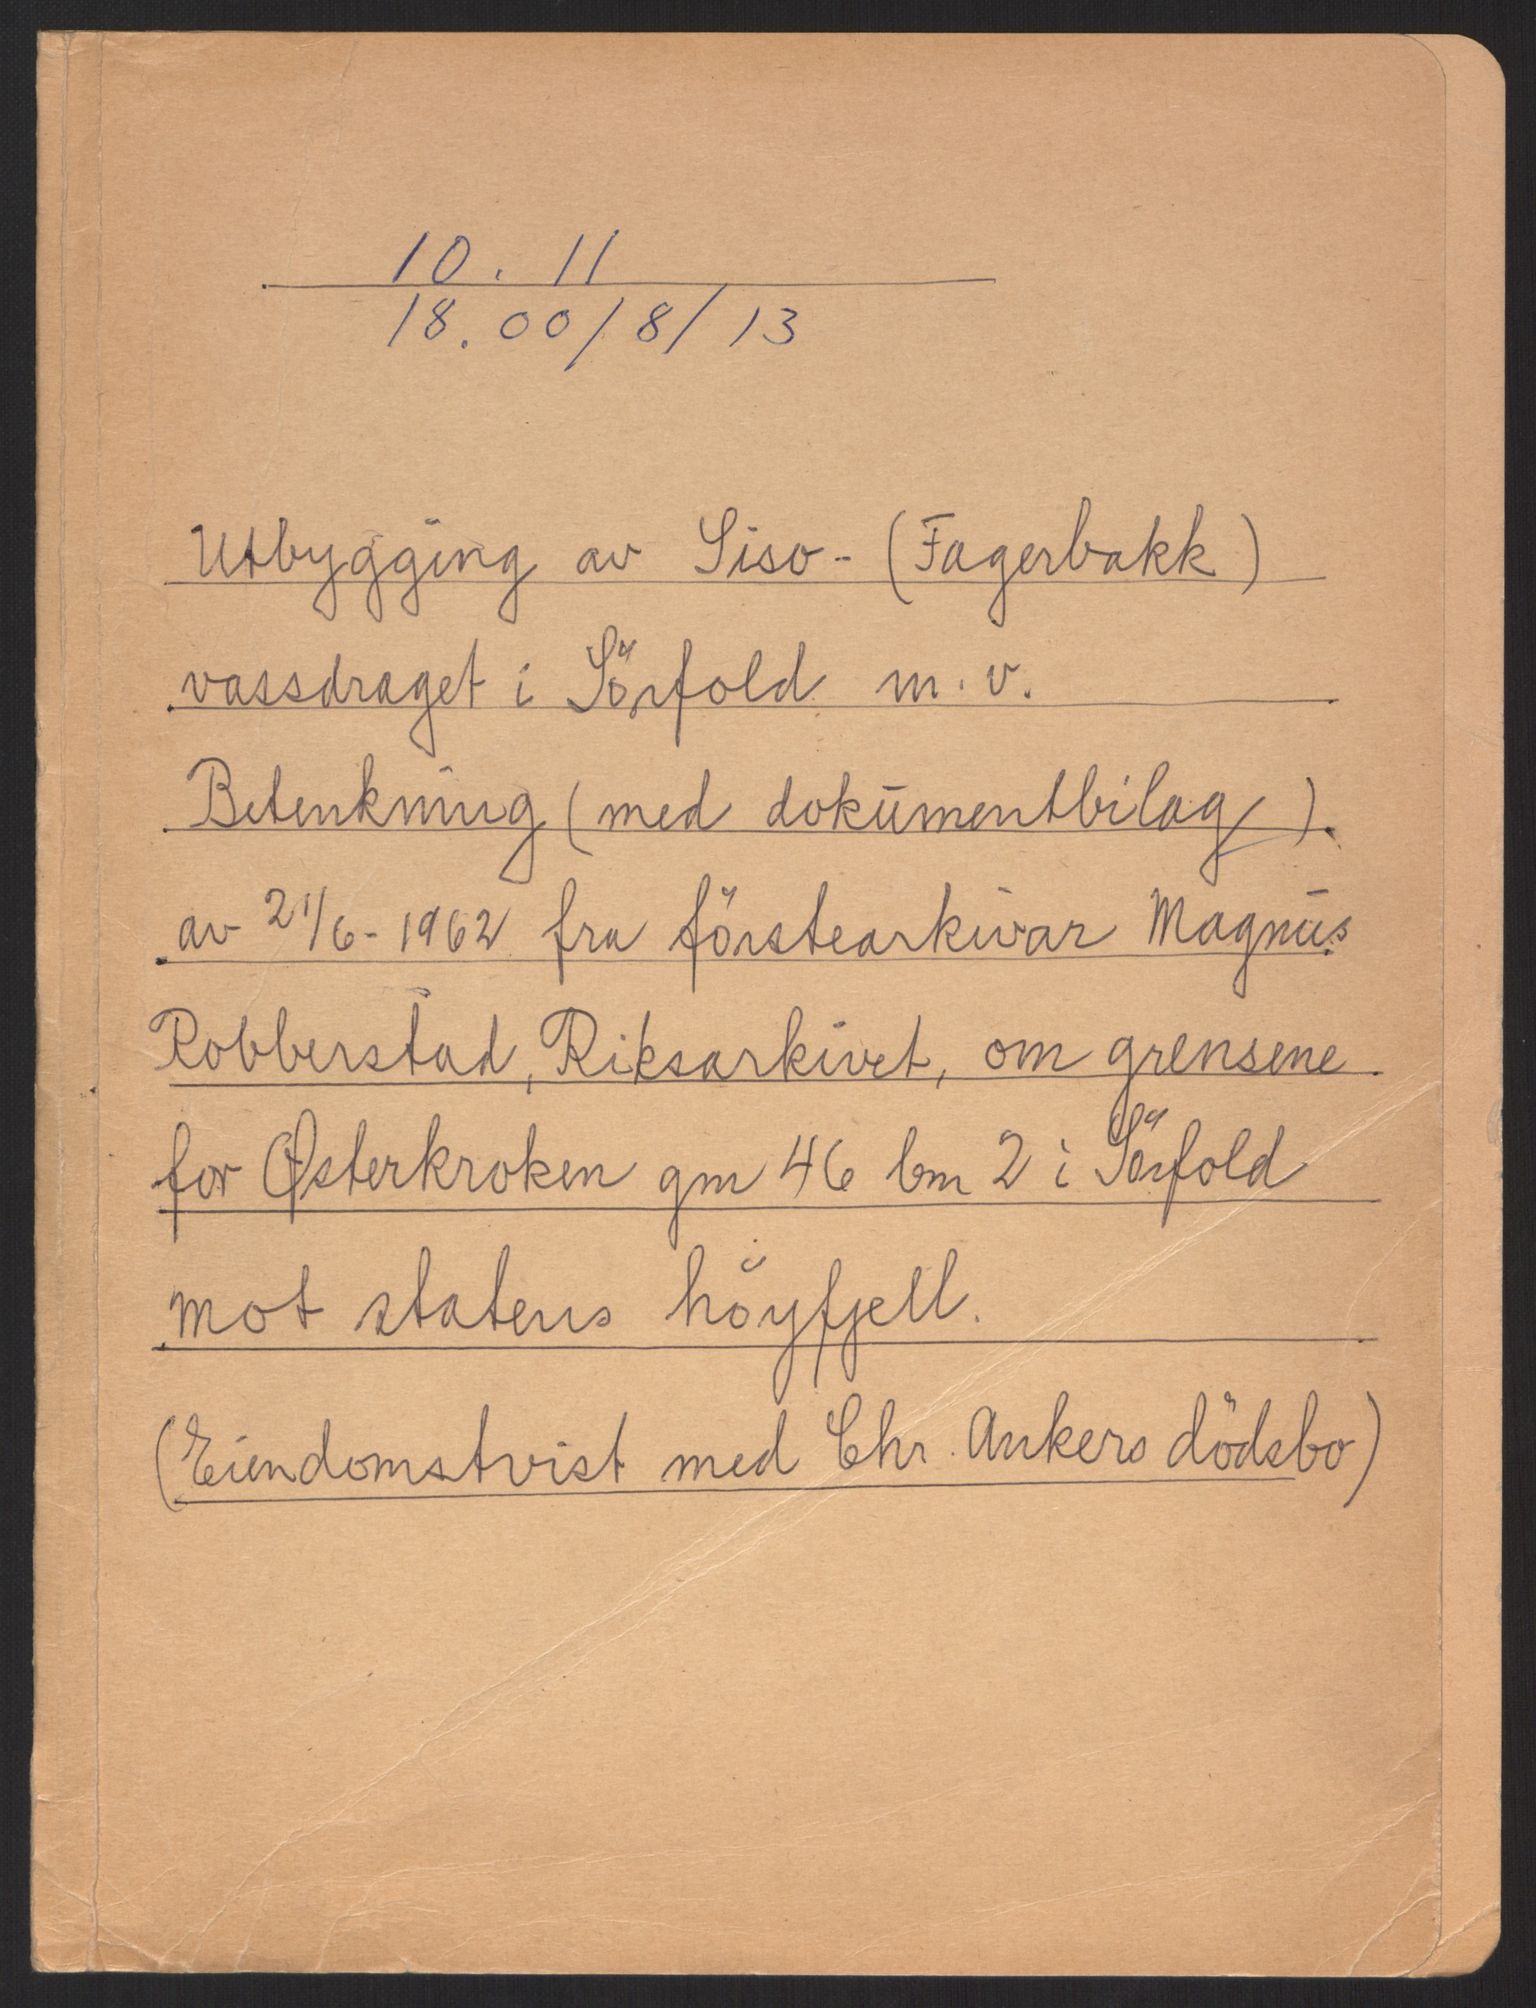 10. 11
18.00/8/13
Utbygging av Siso- (Fagerbakk)
vassdraget i Sörfold m.v.
Betenkning (med dokumentbilag).
av 21/6-1962 fra förstearkivar Magnus
Robberstad, Riksarkivet, om grensene
for Østerkroken gm 46 bm 2 i Sörfold
mot statens höyfjell.
(Eiendomstvist med Chr. Ankers dödsbo)